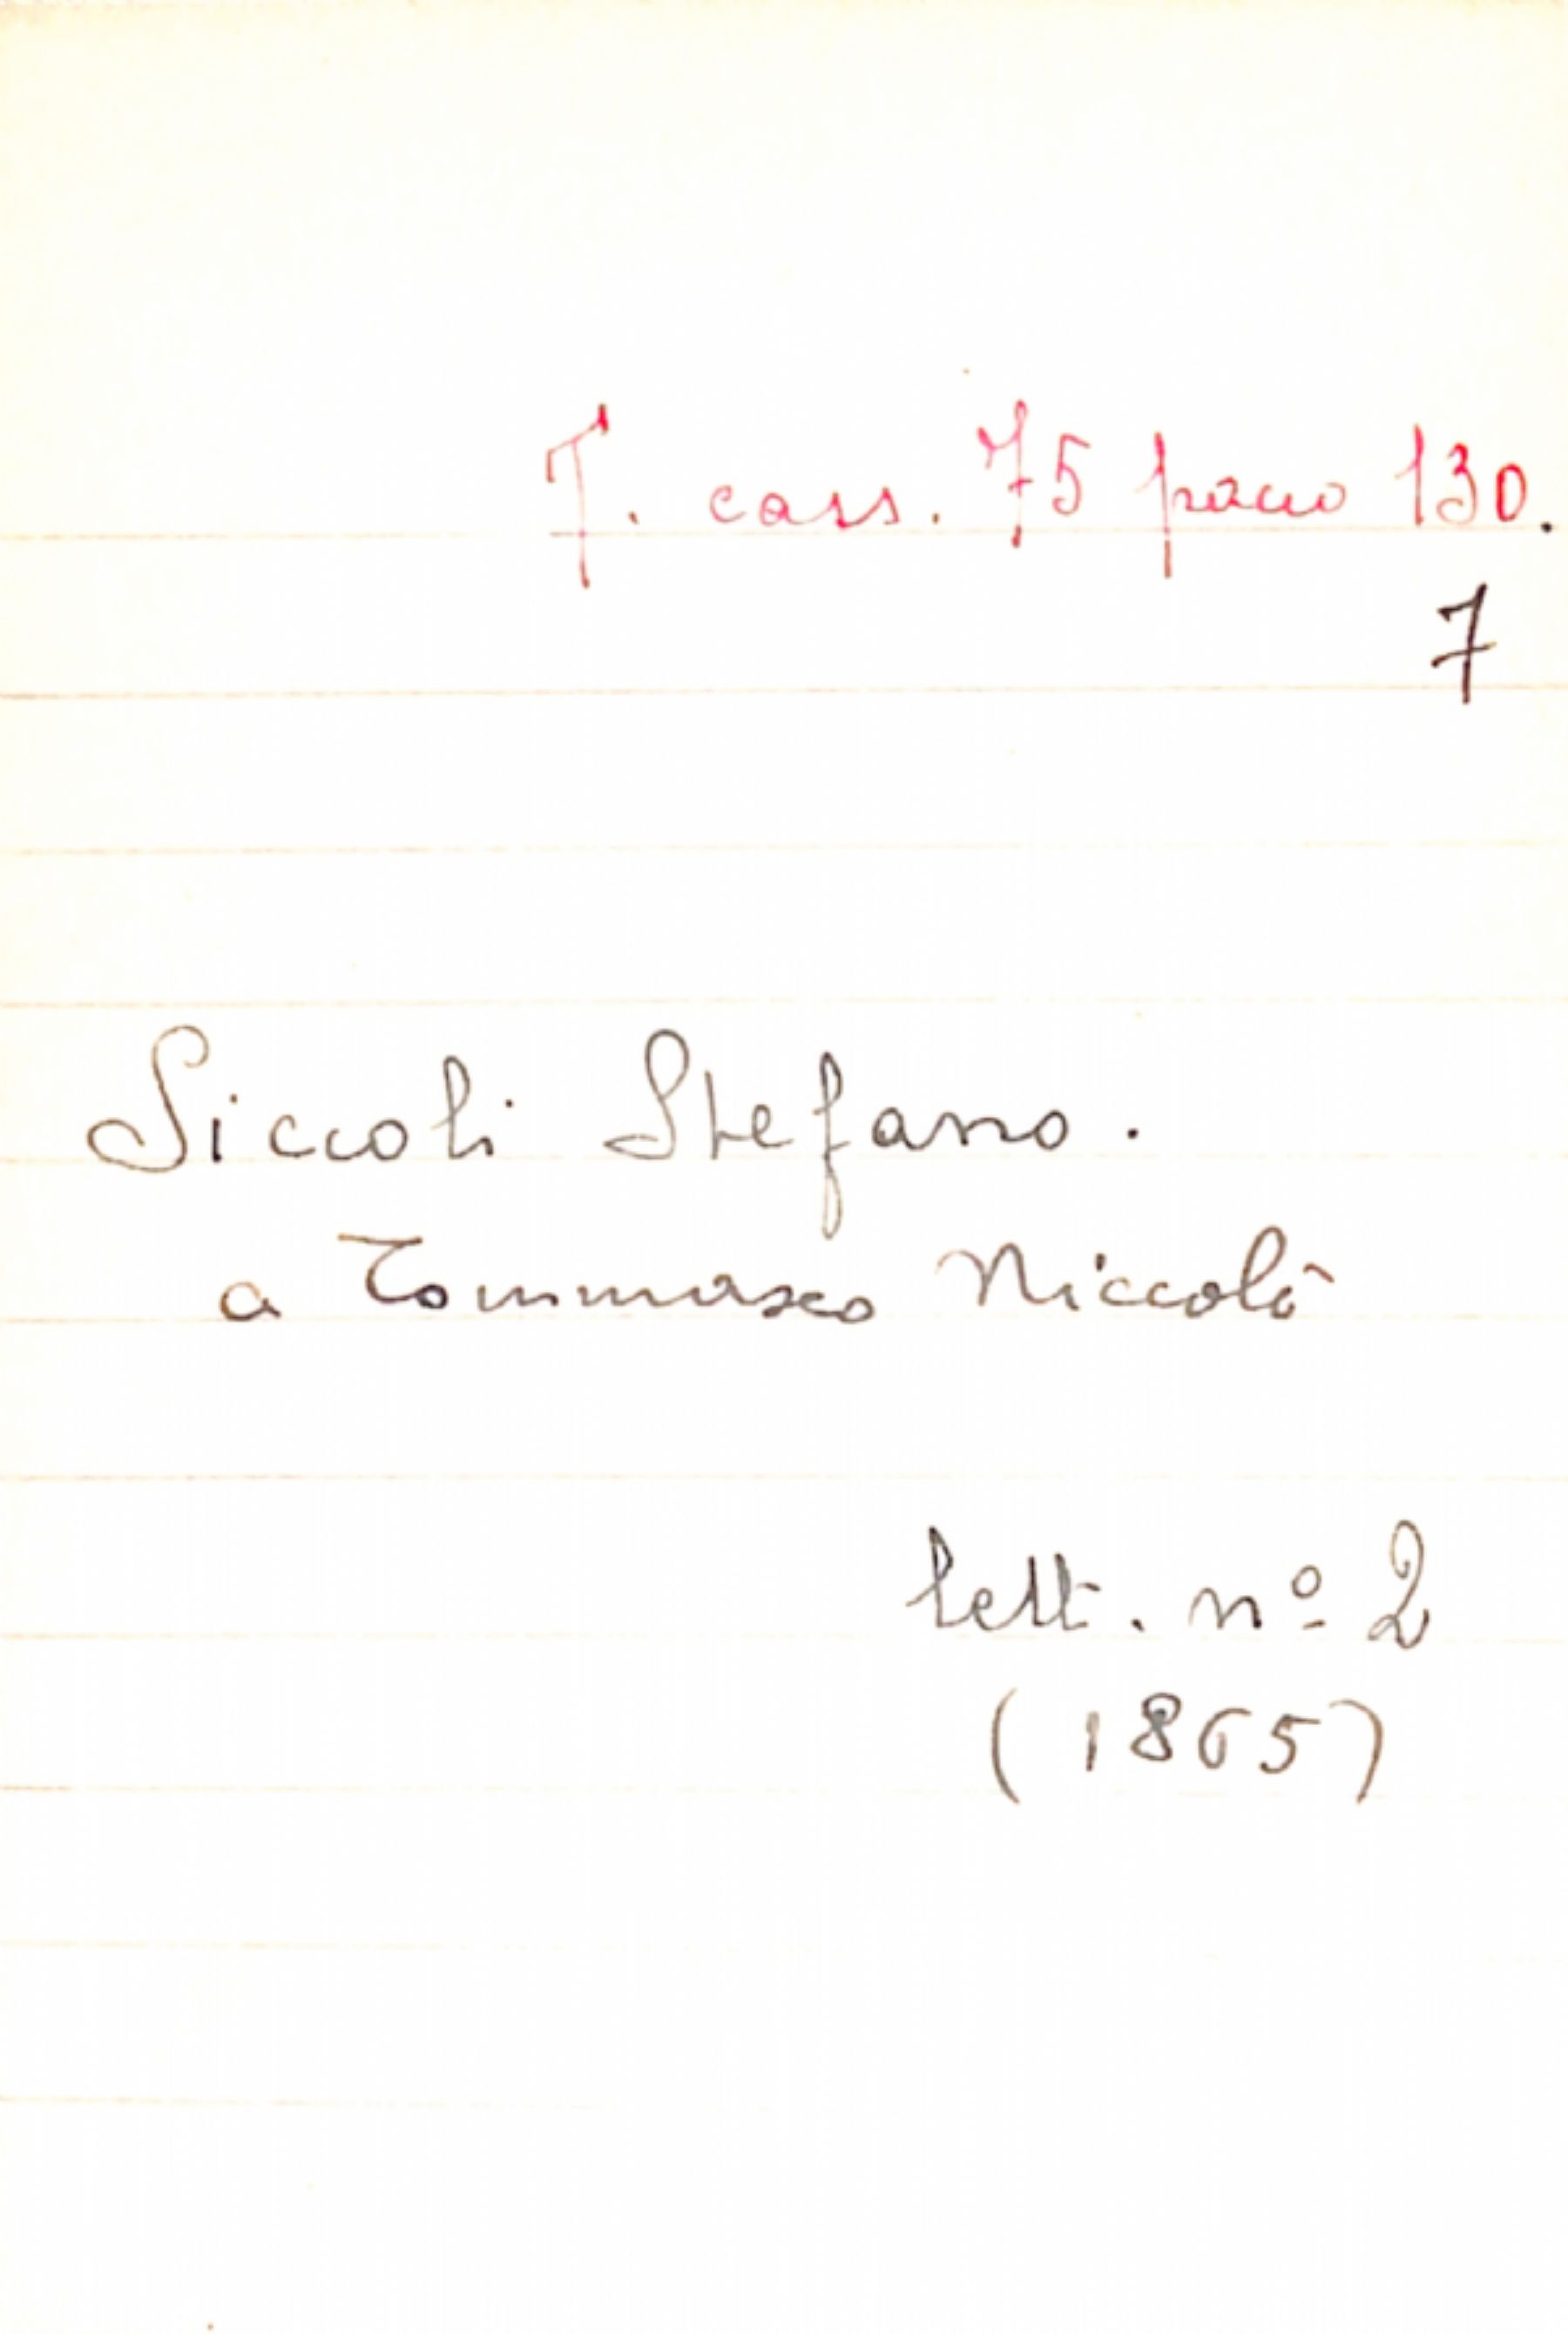 T. cass. 75 pacco 130.
7
Siccoli Stefano.
a Tommaseo Niccolò
lett. nº 2
(1865)